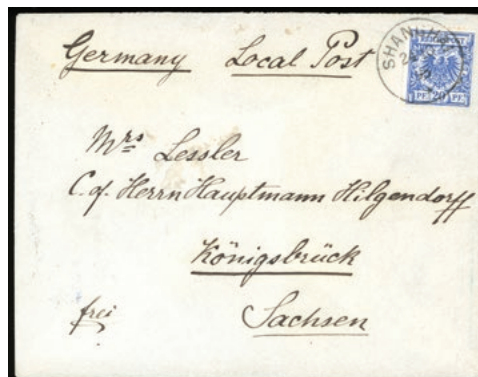 Germany Local Post
SHANGHAI
PF. 20 PF.
Mrs Lessler
C. of. Herrn Hauptmann Hilgendorff
Königsbrück
frei Sachsen